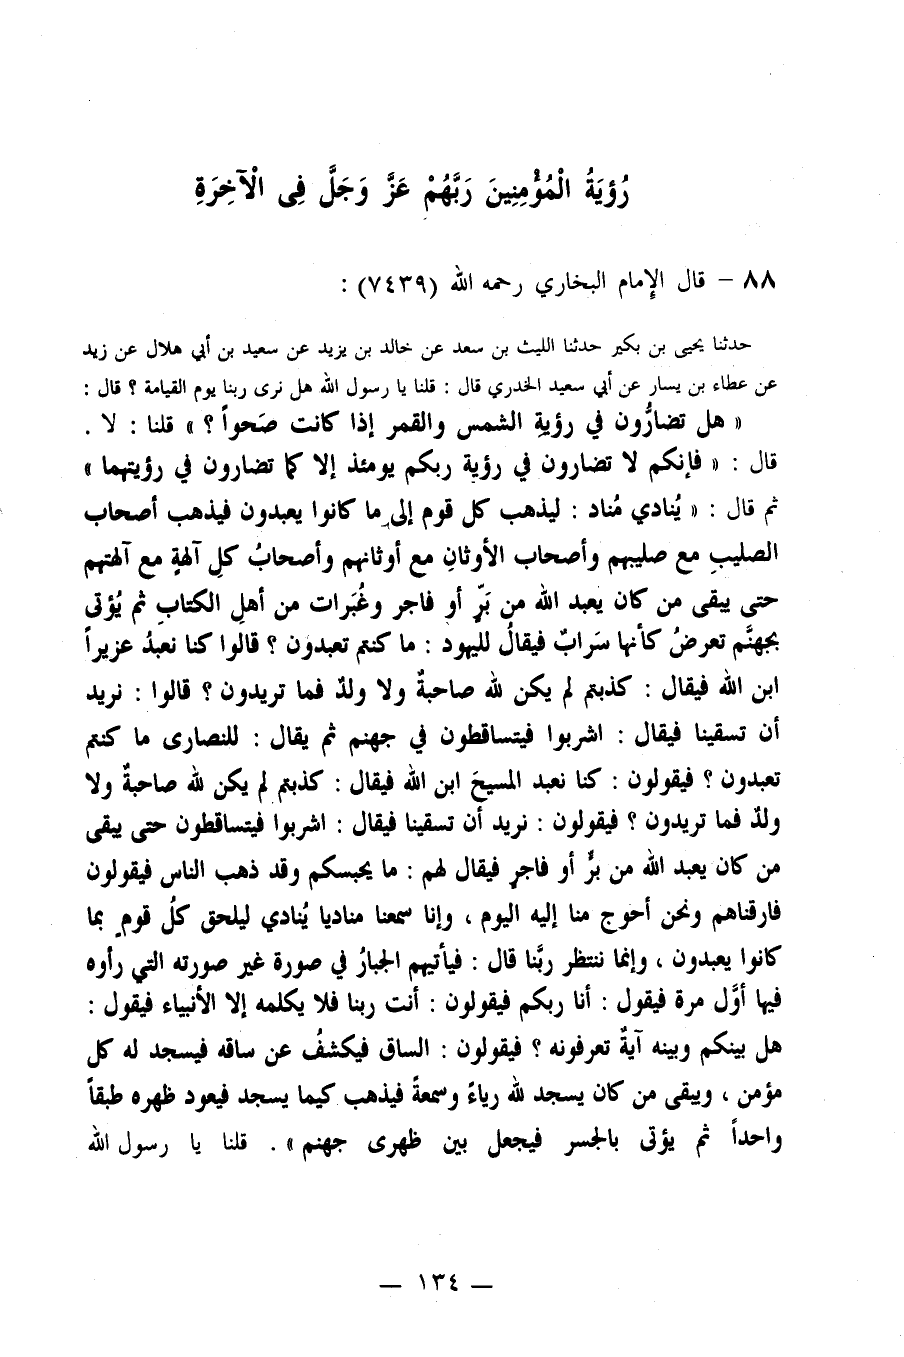 رُؤيَةُ الْمُؤْمِنِينَ رَبَّهُمْ عَزَّ وَجَلَّ فِى الْآخِرَةِ
٨٨ – قال الإمام البخاري رحمه الله (٧٤٣٩) :
حدثنا يحيى بن بكير حدثنا الليث بن سعد عن خالد بن يزيد عن سعيد بن أبي هلال عن زيد
عن عطاء بن يسار عن أبي سعيد الخدري قال : قلنا يا رسول الله هل نرى ربنا يوم القيامة ؟ قال :
« هل تضارُّون في رؤيةِ الشمس والقمر إذا كانت صَحواً ؟ » قلنا : لا .
قال : « فإنكم لا تضارون في رؤية ربكم يومئذ إلا كما تضارون في رؤيتهما »
ثم قال : « يُنادي مُناد : ليذهب كل قوم إلى ما كانوا يعبدون فيذهب أصحاب
الصليبِ مع صليبهم وأصحاب الأوثانِ مع أوثانهم وأصحابُ كلِ آلهةٍ مع آلهتهم
حتى يبقى من كان يعبد الله من بَرٍّ أو فاجر وغُبَرات من أهلِ الكتابِ ثم يُؤتى
بجهنَّم تعرضُ كأنها سَرابٌ فيقالُ لليهود : ما كنتم تعبدون ؟ قالوا كنا نعبدُ عزيراً
ابن الله فيقال : كذبتم لم يكن لله صاحبةٌ ولا ولدٌ فما تريدون ؟ قالوا : نريد
أن تسقينا فيقال : اشربوا فيتساقطون في جهنم ثم يقال : للنصارى ما كنتم
تعبدون ؟ فيقولون : كنا نعبد المسيحَ ابن الله فيقال : كذبتم لم يكن لله صاحبةٌ ولا
ولدٌ فما تريدون ؟ فيقولون : نريد أن تسقينا فيقال : اشربوا فيتساقطون حتى يبقى
من كان يعبد الله من برٍّ أو فاجرٍ فيقال لهم : ما يحبسكم وقد ذهب الناس فيقولون
فارقناهم ونحن أحوج منا إليه اليوم ، وإنا سمعنا مناديا يُنادي ليلحق كلُ قومٍ بما
كانوا يعبدون ، وإنما ننتظر ربَّنا قال : فيأتيهم الجبارُ في صورة غير صورته التي رأوه
فيها أوَّل مرة فيقول : أنا ربكم فيقولون : أنت ربنا فلا يكلمه إلا الأنبياء فيقول :
هل بينكم وبينه آيةٌ تعرفونه ؟ فيقولون : الساق فيكشفُ عن ساقه فيسجد له كل
مؤمن ، ويبقى من كان يسجد لله رياءً وسمعةً فيذهب كيما يسجد فيعود ظهره طبقاً
واحداً ثم يؤتى بالجسر فيجعل بين ظهرى جهنم » . قلنا يا رسول الله
— ١٣٤ —